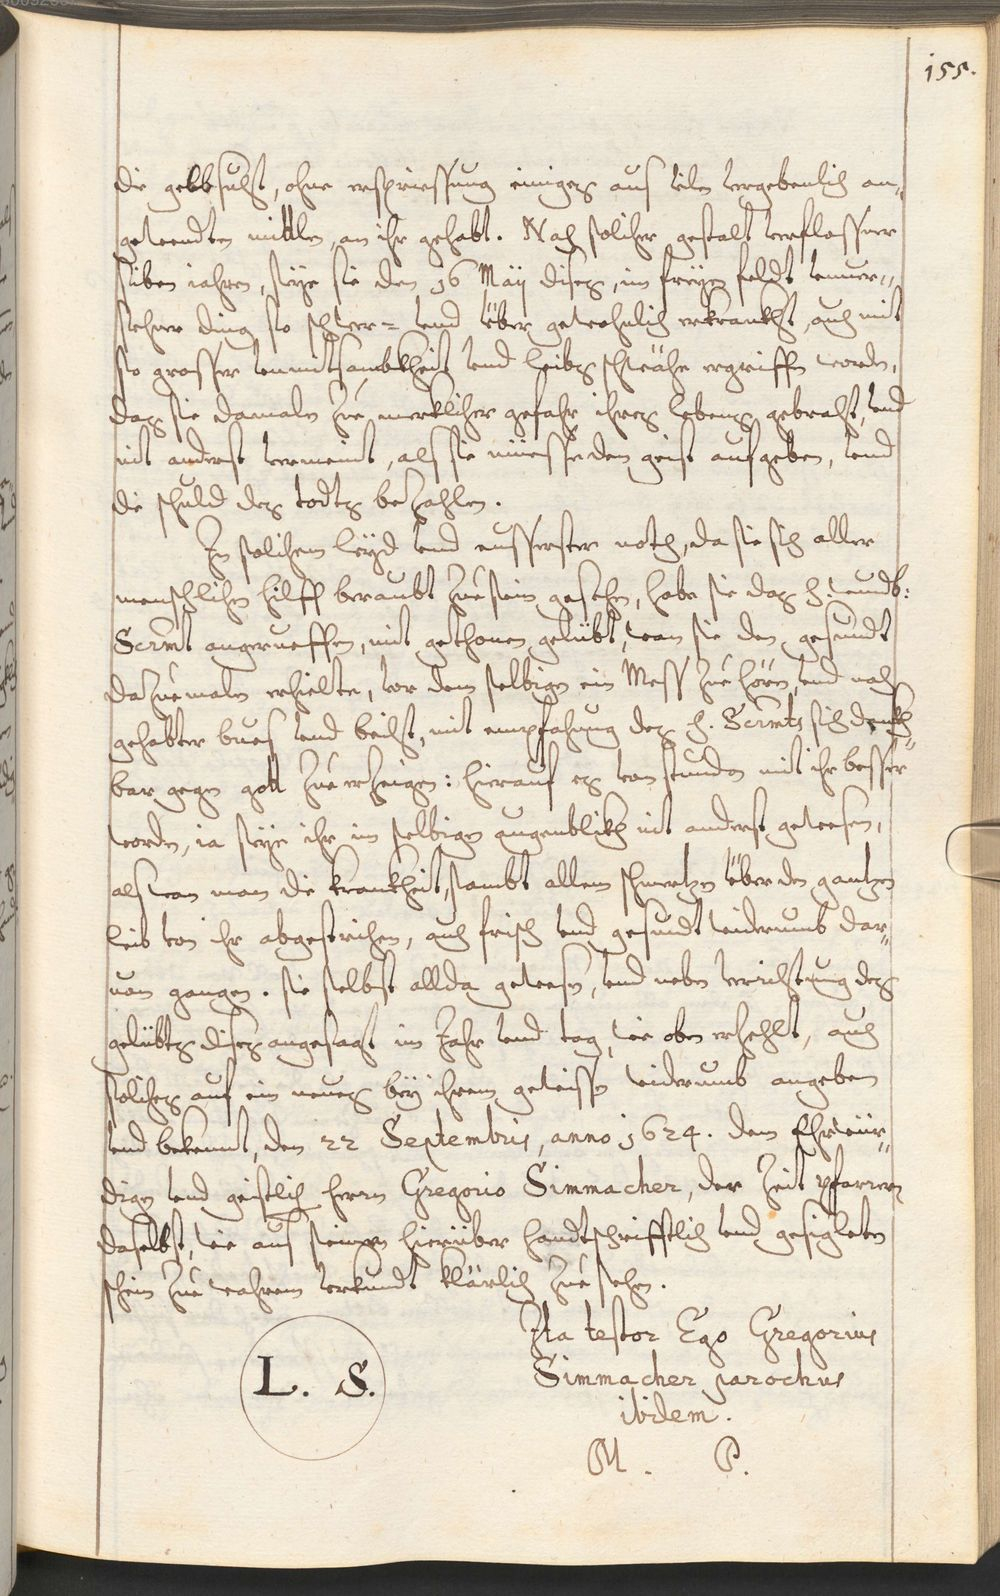 155.
die gelbsucht, ohne ersprießung einiges aus vilen vergebenlich an„
gewendten mittlen, an ihr gehabt. Nach solicher gestalt verfloßner
siben iahren, seÿe sie den 16 Maÿ dises, im freÿen feldt vnuer„
sehner ding so schwer= vnd über gewohnlich erkrankht, auch mit
so grosser vnmuetsambkheit vnd leibs schwäche ergriffen worden,
das sie damalen zue merklicher gefahr ihres lebens gebracht, vnd
nit anderst vermeint, als sie müesse den geist aufgeben, vnd
die schuld des todts bezahlen.
In solichem leÿd vnd eusserster noth, da sie sich aller
menschlichen hilff beraubt zuesein gesehen, habe sie das h: wundb:
Scrmt angerueffen, mit gethonen gelübt, wan sie den gesundt
dazuemalen erhielte, vor dem selbigen ein Mess zue hören, vnd nach
gehabter buess vnd beicht, mit empfahung des h. Scrmts sich dankh„
bar gegen gott zue erzeigen: hierauf es von stunden mit ihr besser
worden, ia seÿe ihr im selbigen augenblikh nit anderst gewesen,
als wan man die krankheit, sambt allem schmertzen über den gantzen
leib von ihr abgestrichen, auch frisch vnd gesundt widerumb dar„
uon gangen. sie selbst allda gewesen, vnd neben verrichtung des
gelübts dises angesagt im Jahr vnd tag, wie oben erzehlt, auch
soliches auf ein neues beÿ ihrem gewissen widerumb angeben
vnd bekennt, den 22 Septembris, anno 1624. dem Ehrwür„
digen vnd geistlich herrn Gregorio Simmacher, der Zeit pfarrern
daselbst, wie aus seinem hierüber handtschrifftlich vnd gesigleten
schein zue wahrem vrkundt klärlich zue sehen.
Ita testor Ego Gregorius
Simmacher parochus
ibidem.
M. P.
L. S.